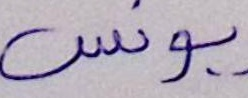 يونس